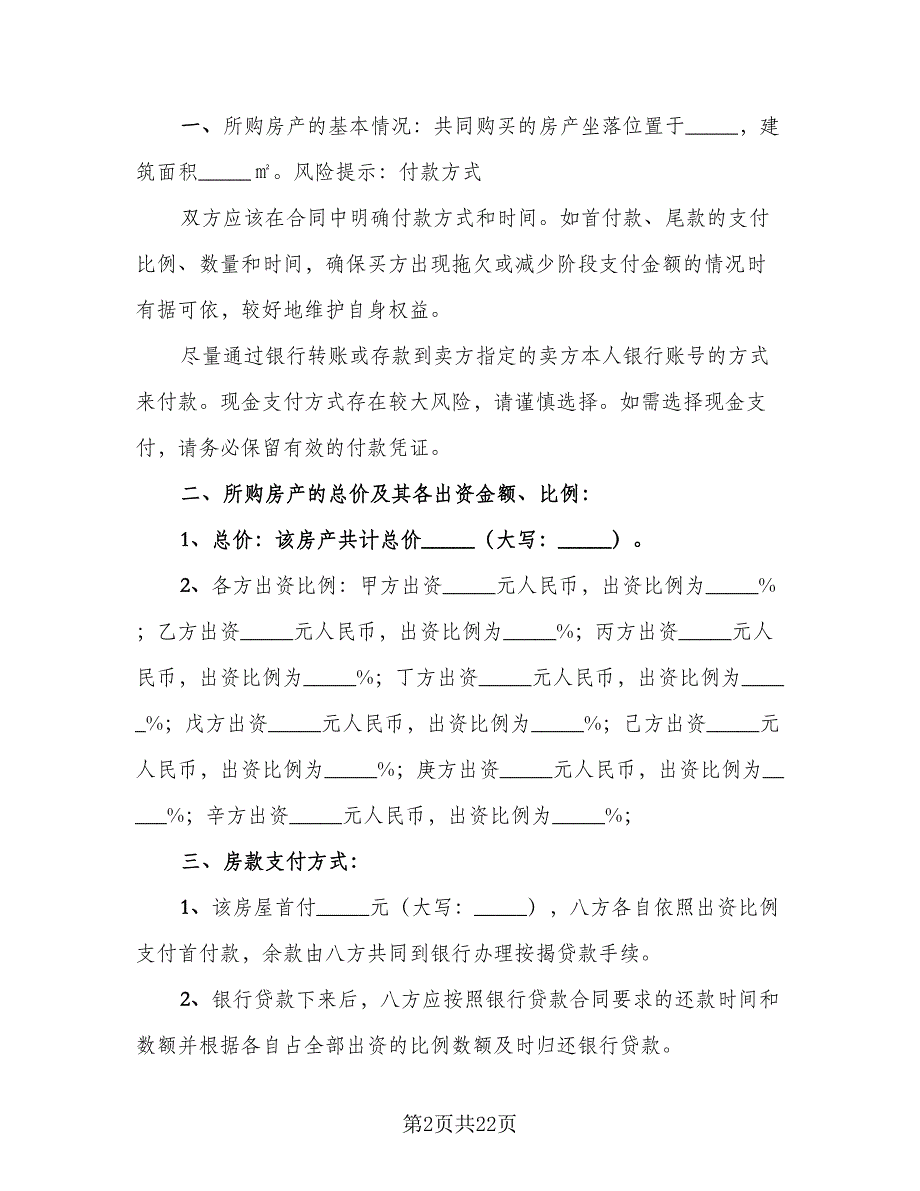 一、所购房产的基本情况：共同购买的房产坐落位置于_____，建
筑面积_____㎡。风险提示：付款方式
双方应该在合同中明确付款方式和时间。如首付款、尾款的支付
比例、数量和时间，确保买方出现拖欠或减少阶段支付金额的情况时
有据可依，较好地维护自身权益。
尽量通过银行转账或存款到卖方指定的卖方本人银行账号的方式
来付款。现金支付方式存在较大风险，请谨慎选择。如需选择现金支
付，请务必保留有效的付款凭证。
二、所购房产的总价及其各出资金额、比例：
1、总价：该房产共计总价_____（大写：_____）。
2、各方出资比例：甲方出资_____元人民币，出资比例为_____%
；乙方出资_____元人民币，出资比例为_____%；丙方出资_____元人
民币，出资比例为_____%；丁方出资_____元人民币，出资比例为____
_%；戊方出资_____元人民币，出资比例为_____%；己方出资_____元
人民币，出资比例为_____%；庚方出资_____元人民币，出资比例为__
___%；辛方出资_____元人民币，出资比例为_____%；
三、房款支付方式：
1、该房屋首付_____元（大写：_____），八方各自依照出资比例
支付首付款，余款由八方共同到银行办理按揭贷款手续。
2、银行贷款下来后，八方应按照银行贷款合同要求的还款时间和
数额并根据各自占全部出资的比例数额及时归还银行贷款。
第2页共22页